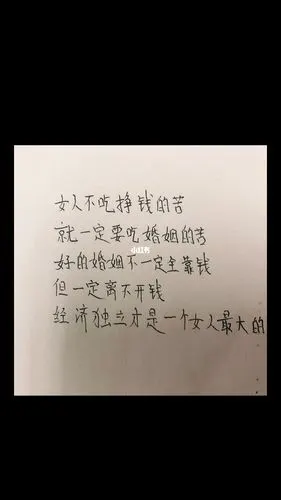 女人不吃挣钱的苦
小红书
就一定要吃婚姻的苦
好的婚姻不一定全靠钱
但一定离不开钱
经济独立才是一个女人最大的